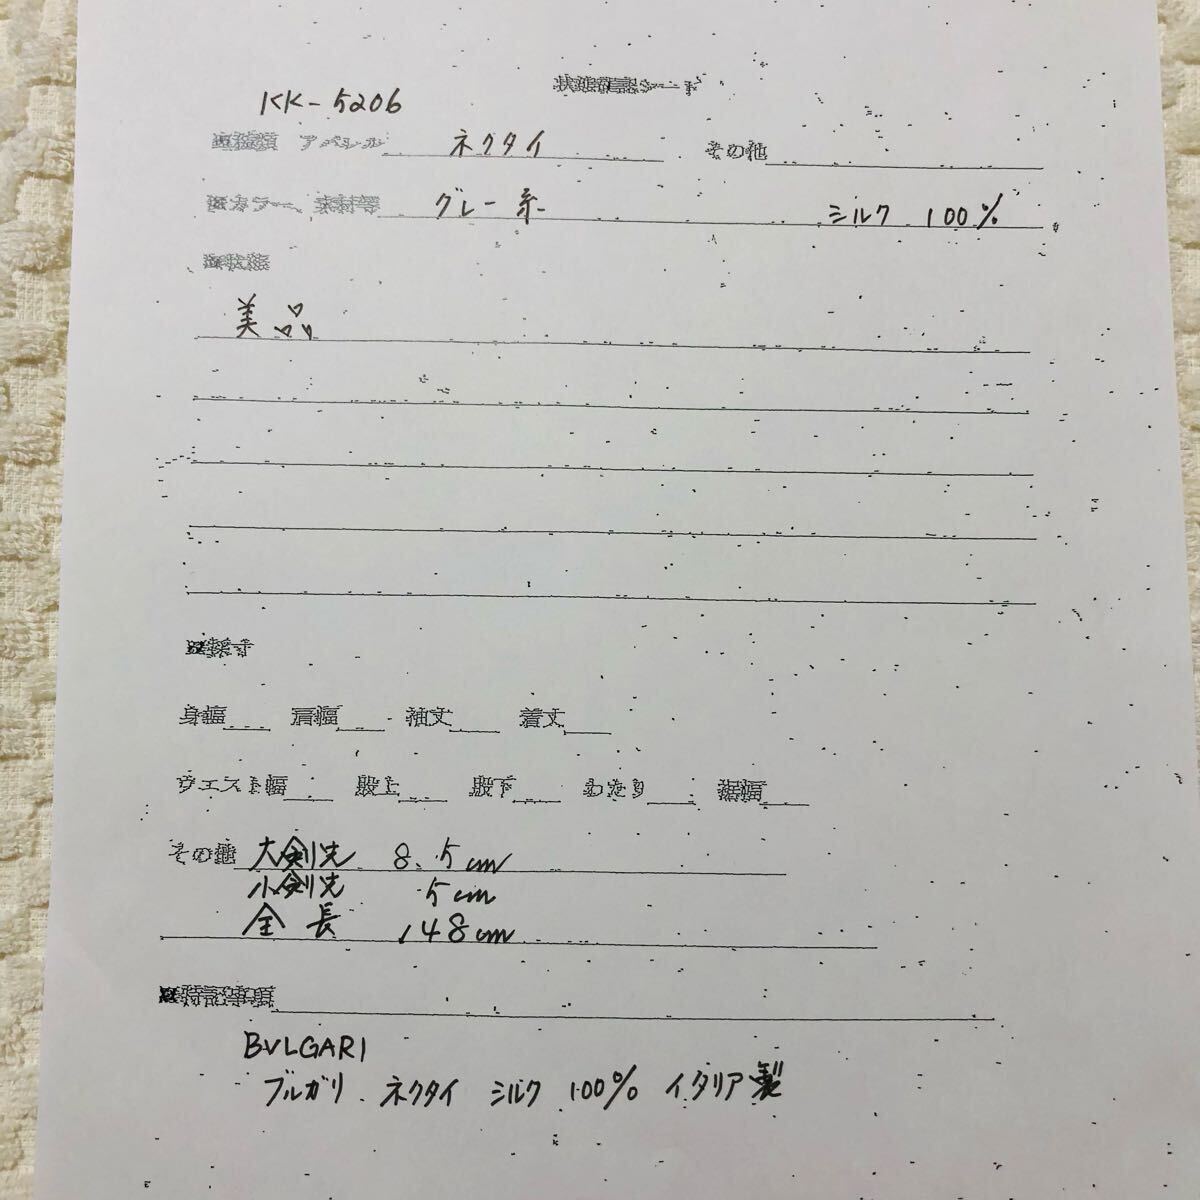 状態確認シート
KK-5206
アパレル ネクタイ その他
カラー、素材等 グレー系 シルク 100%
■状態
美品
■採寸
身幅 肩幅 袖丈 着丈
ウエスト幅 股上 股下 わたり 裾幅
その他 大剣先 8.5cm
小剣先 5cm
全長 148cm
■特記事項
BVLGARI
ブルガリ ネクタイ シルク 100% イタリア製